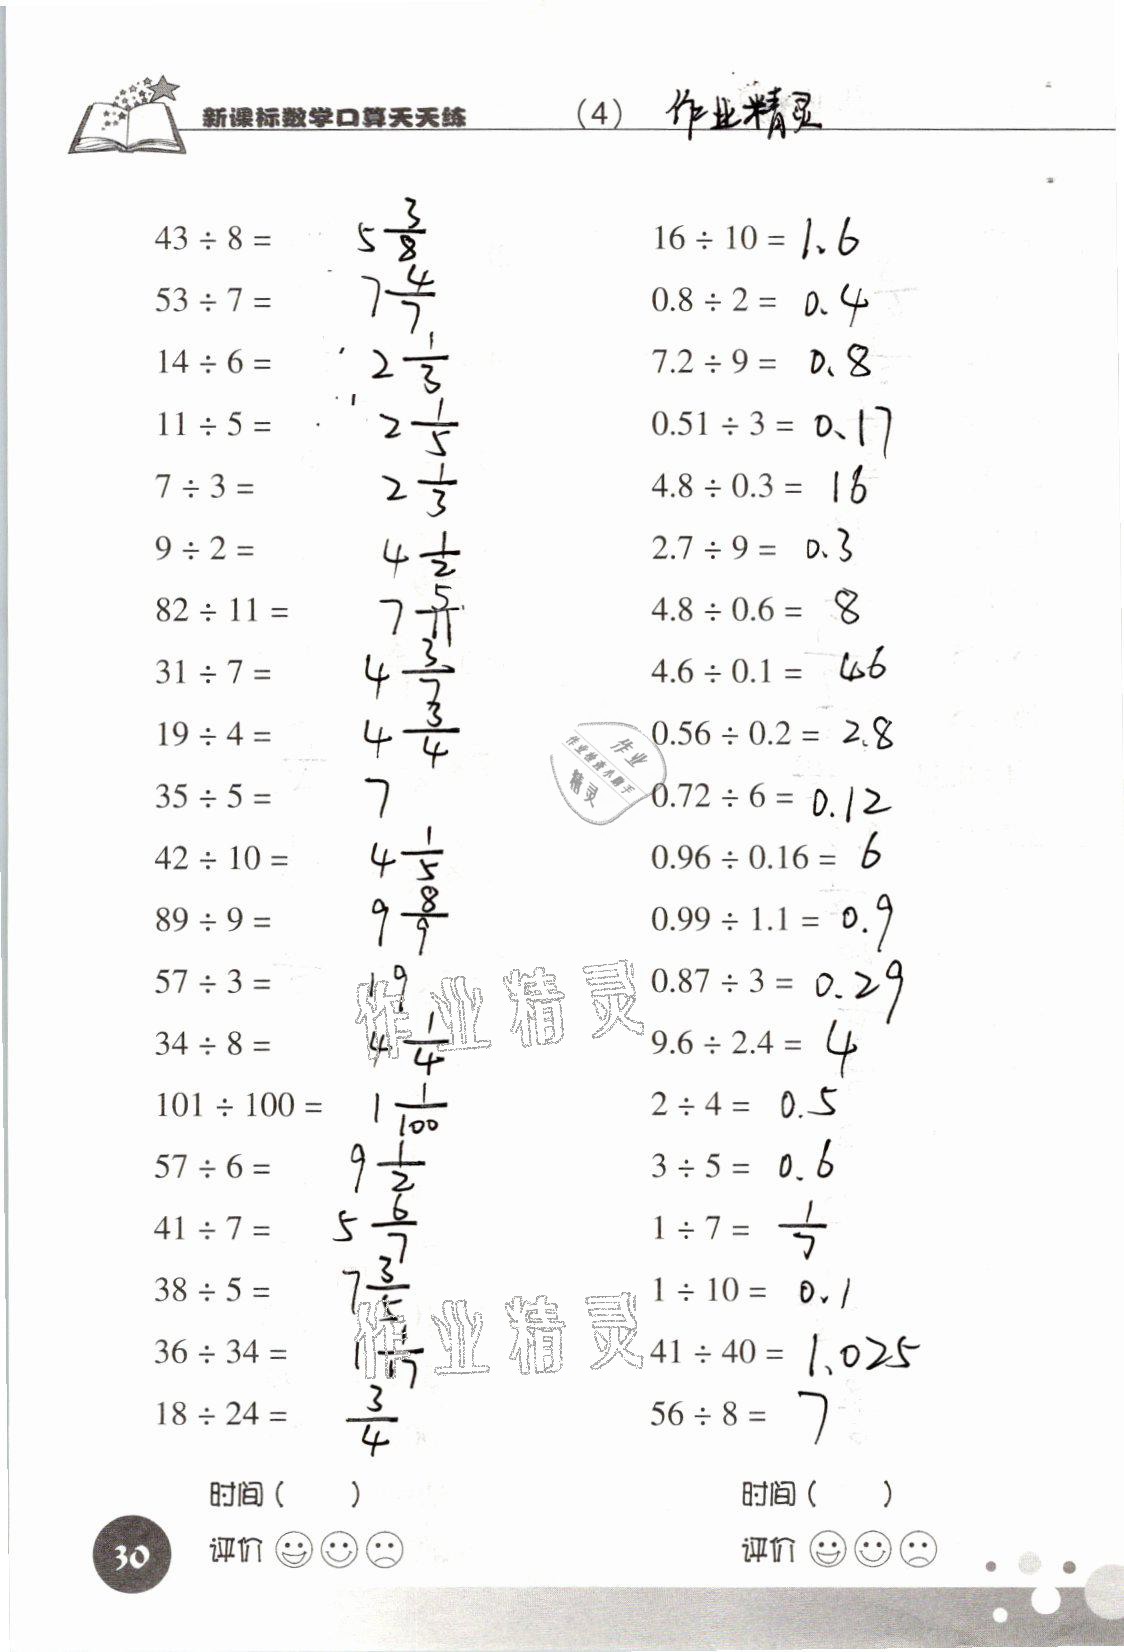 新课标数学口算天天练 (4) 作业精灵
43 ÷ 8 = 5 3/8
53 ÷ 7 = 7 4/7
14 ÷ 6 = 2 1/3
11 ÷ 5 = 2 1/5
7 ÷ 3 = 2 1/3
9 ÷ 2 = 4 1/2
82 ÷ 11 = 7 5/11
31 ÷ 7 = 4 3/7
19 ÷ 4 = 4 3/4
35 ÷ 5 = 7
42 ÷ 10 = 4 1/5
89 ÷ 9 = 9 8/9
57 ÷ 3 = 19
34 ÷ 8 = 4 1/4
101 ÷ 100 = 1 1/100
57 ÷ 6 = 9 1/2
41 ÷ 7 = 5 6/7
38 ÷ 5 = 7 3/5
36 ÷ 34 = 1 1/17
18 ÷ 24 = 3/4
时间 ( )
评价
16 ÷ 10 = 1.6
0.8 ÷ 2 = 0.4
7.2 ÷ 9 = 0.8
0.51 ÷ 3 = 0.17
4.8 ÷ 0.3 = 16
2.7 ÷ 9 = 0.3
4.8 ÷ 0.6 = 8
4.6 ÷ 0.1 = 46
0.56 ÷ 0.2 = 2.8
0.72 ÷ 6 = 0.12
0.96 ÷ 0.16 = 6
0.99 ÷ 1.1 = 0.9
0.87 ÷ 3 = 0.29
9.6 ÷ 2.4 = 4
2 ÷ 4 = 0.5
3 ÷ 5 = 0.6
1 ÷ 7 = 1/7
1 ÷ 10 = 0.1
41 ÷ 40 = 1.025
56 ÷ 8 = 7
时间 ( )
评价
作业
作业检查小助手
精灵
作业精灵
作业精灵
30